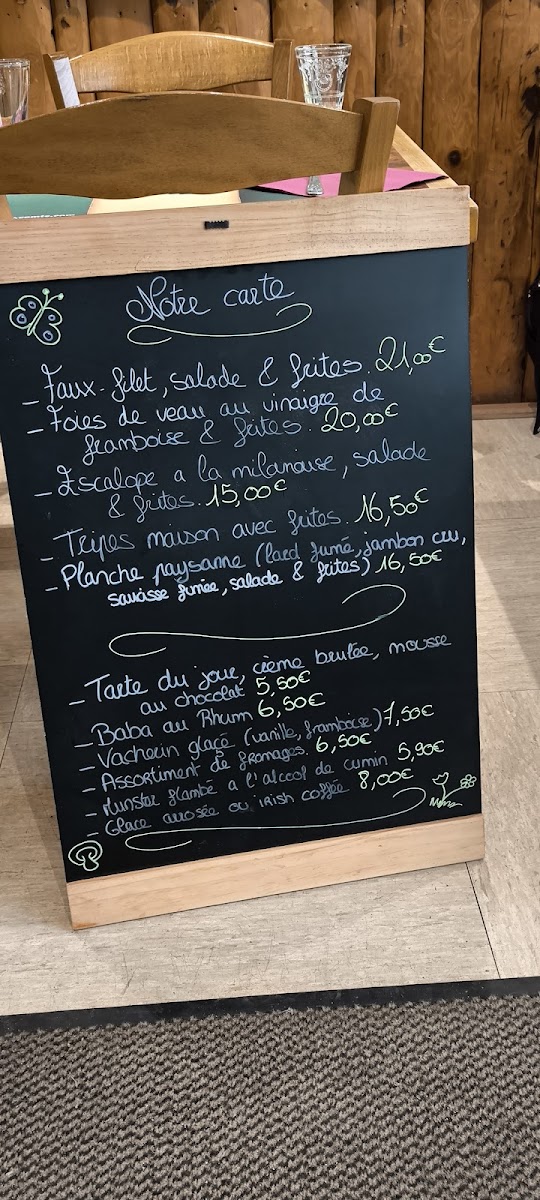 Notre carte
- Faux-filet, salade & frites. 21,00€
- Foies de veau au vinaigre de
framboise & frites. 20,00€
- Escalope a la milanaise, salade
& frites. 15,00€
- Tripes maison avec frites. 16,50€
- Planche paysanne (lard fumé, jambon cru,
saucisse fumée, salade & frites) 16,50€
- Tarte du jour, crème brulée, mousse
au chocolat 5,50€
- Baba au Rhum 6,50€
- Vacherin glacé (vanille, framboise) 7,50€
- Assortiment de fromages. 6,50€
- Munster flambé a l'alcool de cumin 5,90€
- Glace arrosée ou irish coffée 8,00€